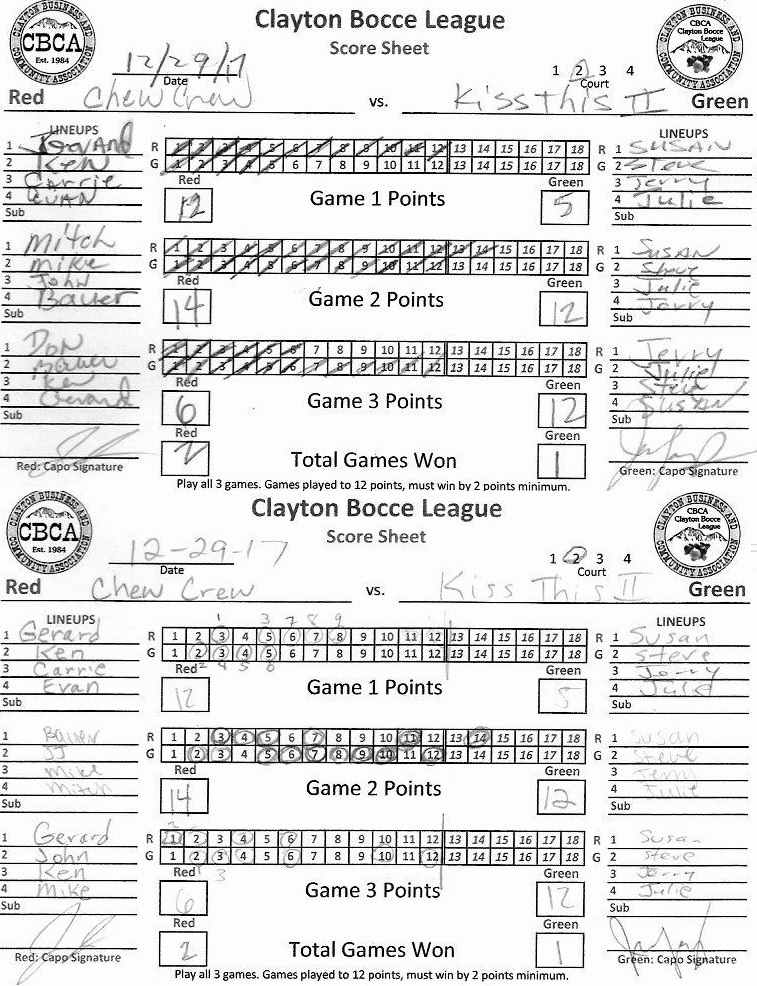 Clayton Bocce League
Score Sheet
CLAYTON BUSINESS AND COMMUNITY ASSOCIATION
CBCA
Est. 1984
CBCA
Clayton Bocce League
12/29/17
Date
1 2 3 4
Court
Red Chew Crew vs. Kiss this II Green
LINEUPS
LINEUPS
1 R 1 2 3 4 5 6 7 8 9 10 11 12 13 14 15 16 17 18 R 1 SUSAN
2 Ken G 1 2 3 4 5 6 7 8 9 10 11 12 13 14 15 16 17 18 G 2 Steve
3 Carrie Red Green 3 Jerry
4 EVAN 12 Game 1 Points 5 4 Julie
Sub Sub
1 Mitch R 1 2 3 4 5 6 7 8 9 10 11 12 13 14 15 16 17 18 R 1 SUSAN
2 Mike G 1 2 3 4 5 6 7 8 9 10 11 12 13 14 15 16 17 18 G 2 Steve
3 John Red Green 3 Julie
4 Bauer 14 Game 2 Points 12 4 Jerry
Sub Sub
1 DON R 1 2 3 4 5 6 7 8 9 10 11 12 13 14 15 16 17 18 R 1 Jerry
2 G 1 2 3 4 5 6 7 8 9 10 11 12 13 14 15 16 17 18 G 2 Julie
3 Ken Red Green 3
4 Gerard 6 Game 3 Points 12 4 SUSAN
Sub Red Green Sub
2 Total Games Won 1
Red: Capo Signature Green: Capo Signature
Play all 3 games. Games played to 12 points, must win by 2 points minimum.
Clayton Bocce League
Score Sheet
CLAYTON BUSINESS AND COMMUNITY ASSOCIATION
CBCA
Est. 1984
CBCA
Clayton Bocce League
12-29-17
Date
1 2 3 4
Court
Red Chew Crew vs. Kiss This II Green
LINEUPS 1 3 7 8 9 LINEUPS
1 Gerard R 1 2 3 4 5 6 7 8 9 10 11 12 13 14 15 16 17 18 R 1 Susan
2 Ken G 1 2 3 4 5 6 7 8 9 10 11 12 13 14 15 16 17 18 G 2 Steve
3 Carrie Red 2 4 5 6 Green 3 Jerry
4 Evan 12 Game 1 Points 5 4 Julie
Sub Sub
1 Bauer R 1 2 3 4 5 6 7 8 9 10 11 12 13 14 15 16 17 18 R 1 Susan
2 JJ G 1 2 3 4 5 6 7 8 9 10 11 12 13 14 15 16 17 18 G 2 Steve
3 Mike Red Green 3 Jerry
4 Mitch 14 Game 2 Points 12 4 Julie
Sub Sub
1 Gerard R 1 2 3 4 5 6 7 8 9 10 11 12 13 14 15 16 17 18 R 1 Susan
2 John G 1 2 3 4 5 6 7 8 9 10 11 12 13 14 15 16 17 18 G 2 Steve
3 Ken Red 1 3 Green 3 Jerry
4 Mike 6 Game 3 Points 12 4 Julie
Sub Red Green Sub
2 Total Games Won 1
Red: Capo Signature Green: Capo Signature
Play all 3 games. Games played to 12 points, must win by 2 points minimum.